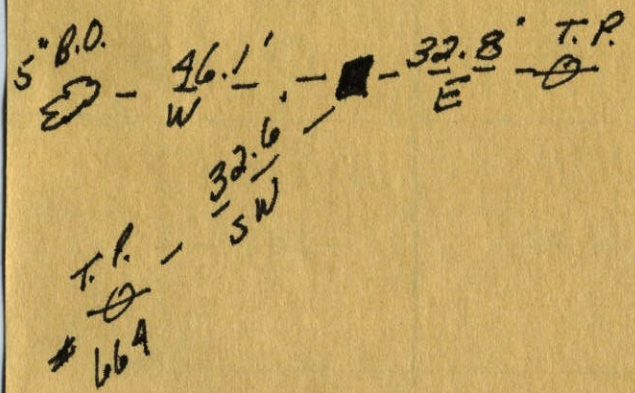 5" B.O.
46.1'
W
32.8'
E
T.P.
32.6'
SW
T.P.
# 664